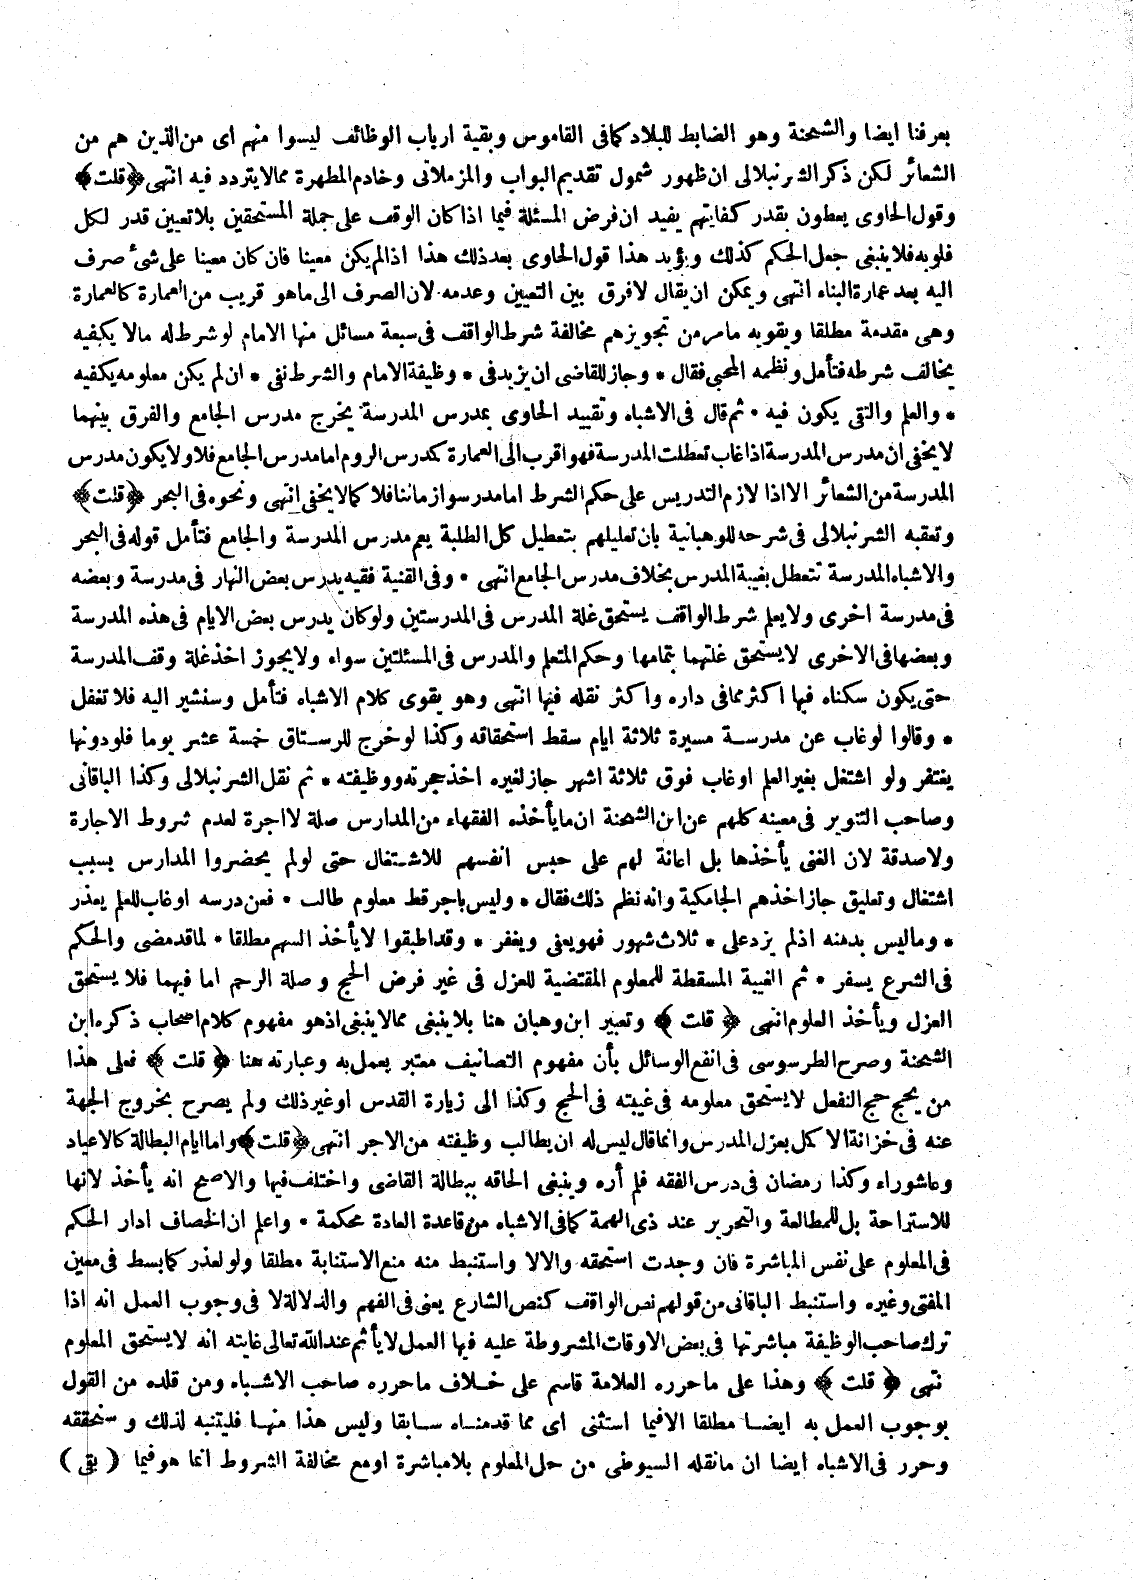 بعرفنا ايضا والشحنة وهو الضابط للبلاد كما فى القاموس وبقية ارباب الوظائف ليسوا منهم اى من الذين هم من
الشعائر لكن ذكر الشرنبلالى ان ظهور شمول تقديم البواب والمزملاتى وخادم المطهرة مما لا يتردد فيه انتهى ﴿ قلت ﴾
وقول الحاوى يعطون بقدر كفايتهم يفيد ان فرض المسئلة فيما اذا كان الوقف على جملة المستحقين بلا تعيين قدر لكل
فلو به فلا ينبغى جعل الحكم كذلك ويؤيد هذا قول الحاوى بعد ذلك هذا اذا لم يكن معينا فان كان معينا على شئ صرف
اليه بعد عمارة البناء انتهى ويمكن ان يقال لا فرق بين التعيين وعدمه لان الصرف الى ما هو قريب من العمارة كالعمارة
وهى مقدمة مطلقا ويقويه ما مر من تجويزهم مخالفة شرط الواقف فى سبعة مسائل منها الامام لو شرط له ما لا يكفيه
يخالف شرطه فتأمل ونظمه المحبى فقال * وجاز للقاضى ان يزيد فى * وظيفة الامام والشرط نفى * ان لم يكن معلومه يكفيه
* والعلم والتقى يكون فيه * ثم قال فى الاشباه وتقييد الحاوى بمدرس المدرسة يخرج مدرس الجامع والفرق بينهما
لا يخفى ان مدرس المدرسة اذا غاب تعطلت المدرسة فهو اقرب الى العمارة كمدرس الروم اما مدرس الجامع فلا ولا يكون مدرس
المدرسة من الشعائر الا اذا لازم التدريس على حكم الشرط اما مدرسو ازماننا فلا كما لا يخفى انتهى ونحوه فى البحر ﴿ قلت ﴾
وتعقبه الشرنبلالى فى شرحه للوهبانية بان تعليلهم بتعطيل كل الطلبة يعم مدرس المدرسة والجامع فتأمل قوله فى البحر
والاشباه المدرسة تتعطل بغيبة المدرس بخلاف مدرس الجامع انتهى * وفى القنية فقيه يدرس بعض النهار فى مدرسة وبعضه
فى مدرسة اخرى ولا يعلم شرط الواقف يستحق غلة المدرس فى المدرستين ولو كان يدرس بعض الايام فى هذه المدرسة
وبعضها فى الاخرى لا يستحق غلتهما بتمامها وحكم المتعلم والمدرس فى المسئلتين سواء ولا يجوز اخذ غلة وقف المدرسة
حتى يكون سكناه فيها اكثر مما فى داره واكثر نقله فيها انتهى وهو يقوى كلام الاشباه فتأمل وسنشير اليه فلا تغفل
* وقالوا لو غاب عن مدرسة مسيرة ثلاثة ايام سقط استحقاقه وكذا لو خرج للرستاق خمسة عشر يوما فلو دونها
يغتفر ولو اشتغل بغير العلم او غاب فوق ثلاثة اشهر جاز لغيره اخذ حجرته ووظيفته * ثم نقل الشرنبلالى وكذا الباقانى
وصاحب التنوير فى معينه كلهم عن ابن الشحنة ان ما يأخذه الفقهاء من المدارس صلة لا اجرة لعدم شروط الاجارة
ولا صدقة لان الغنى يأخذها بل اعانة لهم على حبس انفسهم للاشتغال حتى لو لم يحضروا المدارس بسبب
اشتغال وتعليق جاز اخذهم الجامكية وانه نظم ذلك فقال * وليس باجر قط معلوم طالب * فعن درسه او غاب للعلم يعذر
* وما ليس بدمنه اذ لم يزد على * ثلاث شهور فهو يعفى ويغفر * وقد اطبقوا لا يأخذ السهم مطلقا * لما قد مضى والحكم
فى الشرع يسفر * ثم الغيبة المسقطة للمعلوم المقتضية للعزل فى غير فرض الحج وصلة الرحم اما فيهما فلا يستحق
العزل ويأخذ العلوم انتهى ﴿ قلت ﴾ وتعبير ابن وهبان هنا بلا ينبغى مما لا ينبغى اذ هو مفهوم كلام اصحاب ذكره ابن
الشحنة وصرح الطرسوسى فى انفع الوسائل بأن مفهوم التصانيف معتبر يعمل به وعبارته هنا ﴿ قلت ﴾ فعلى هذا
من يحج حج النفعل لا يستحق معلومه فى غيبته فى الحج وكذا الى زيارة القدس او غير ذلك ولم يصرح بخروج الجهة
عنه فى خزانة الاكل بعزل المدرس وانما قال ليس له ان يطالب وظيفته من الاجر انتهى ﴿ قلت ﴾ واما ايام البطالة كالاعياد
وعاشوراء وكذا رمضان فى درس الفقه فلم أره وينبغى الحاقه ببطالة القاضى واختلف فيها والاصح انه يأخذ لانها
للاستراحة بل للمطالعة والتحرير عند ذى الهمة كما فى الاشباه من قاعدة العادة محكمة * واعلم ان الخصاف ادار الحكم
فى المعلوم على نفس المباشرة فان وجدت استحقه والا لا واستنبط منه منع الاستنابة مطلقا ولو لعذر كما بسط فى معين
المفتى وغيره واستنبط الباقانى من قولهم نص الواقف كنص الشارع يعنى فى الفهم والدلالة لا فى وجوب العمل انه اذا
ترك صاحب الوظيفة مباشرتها فى بعض الاوقات المشروطة عليه فيها العمل لا يأثم عند الله تعالى غايته انه لا يستحق المعلوم
نتهى ﴿ قلت ﴾ وهذا على ما حرره العلامة قاسم على خلاف ما حرره صاحب الاشباه ومن قلده من القول
بوجوب العمل به ايضا مطلقا الا فيما استثنى اى مما قدمناه سابقا وليس هذا منها فليتنبه لذلك وسنحققه
وحرر فى الاشباه ايضا ان ما نقله السيوطى من حل المعلوم بلا مباشرة او مع مخالفة الشروط انما هو فيما ( بقى )